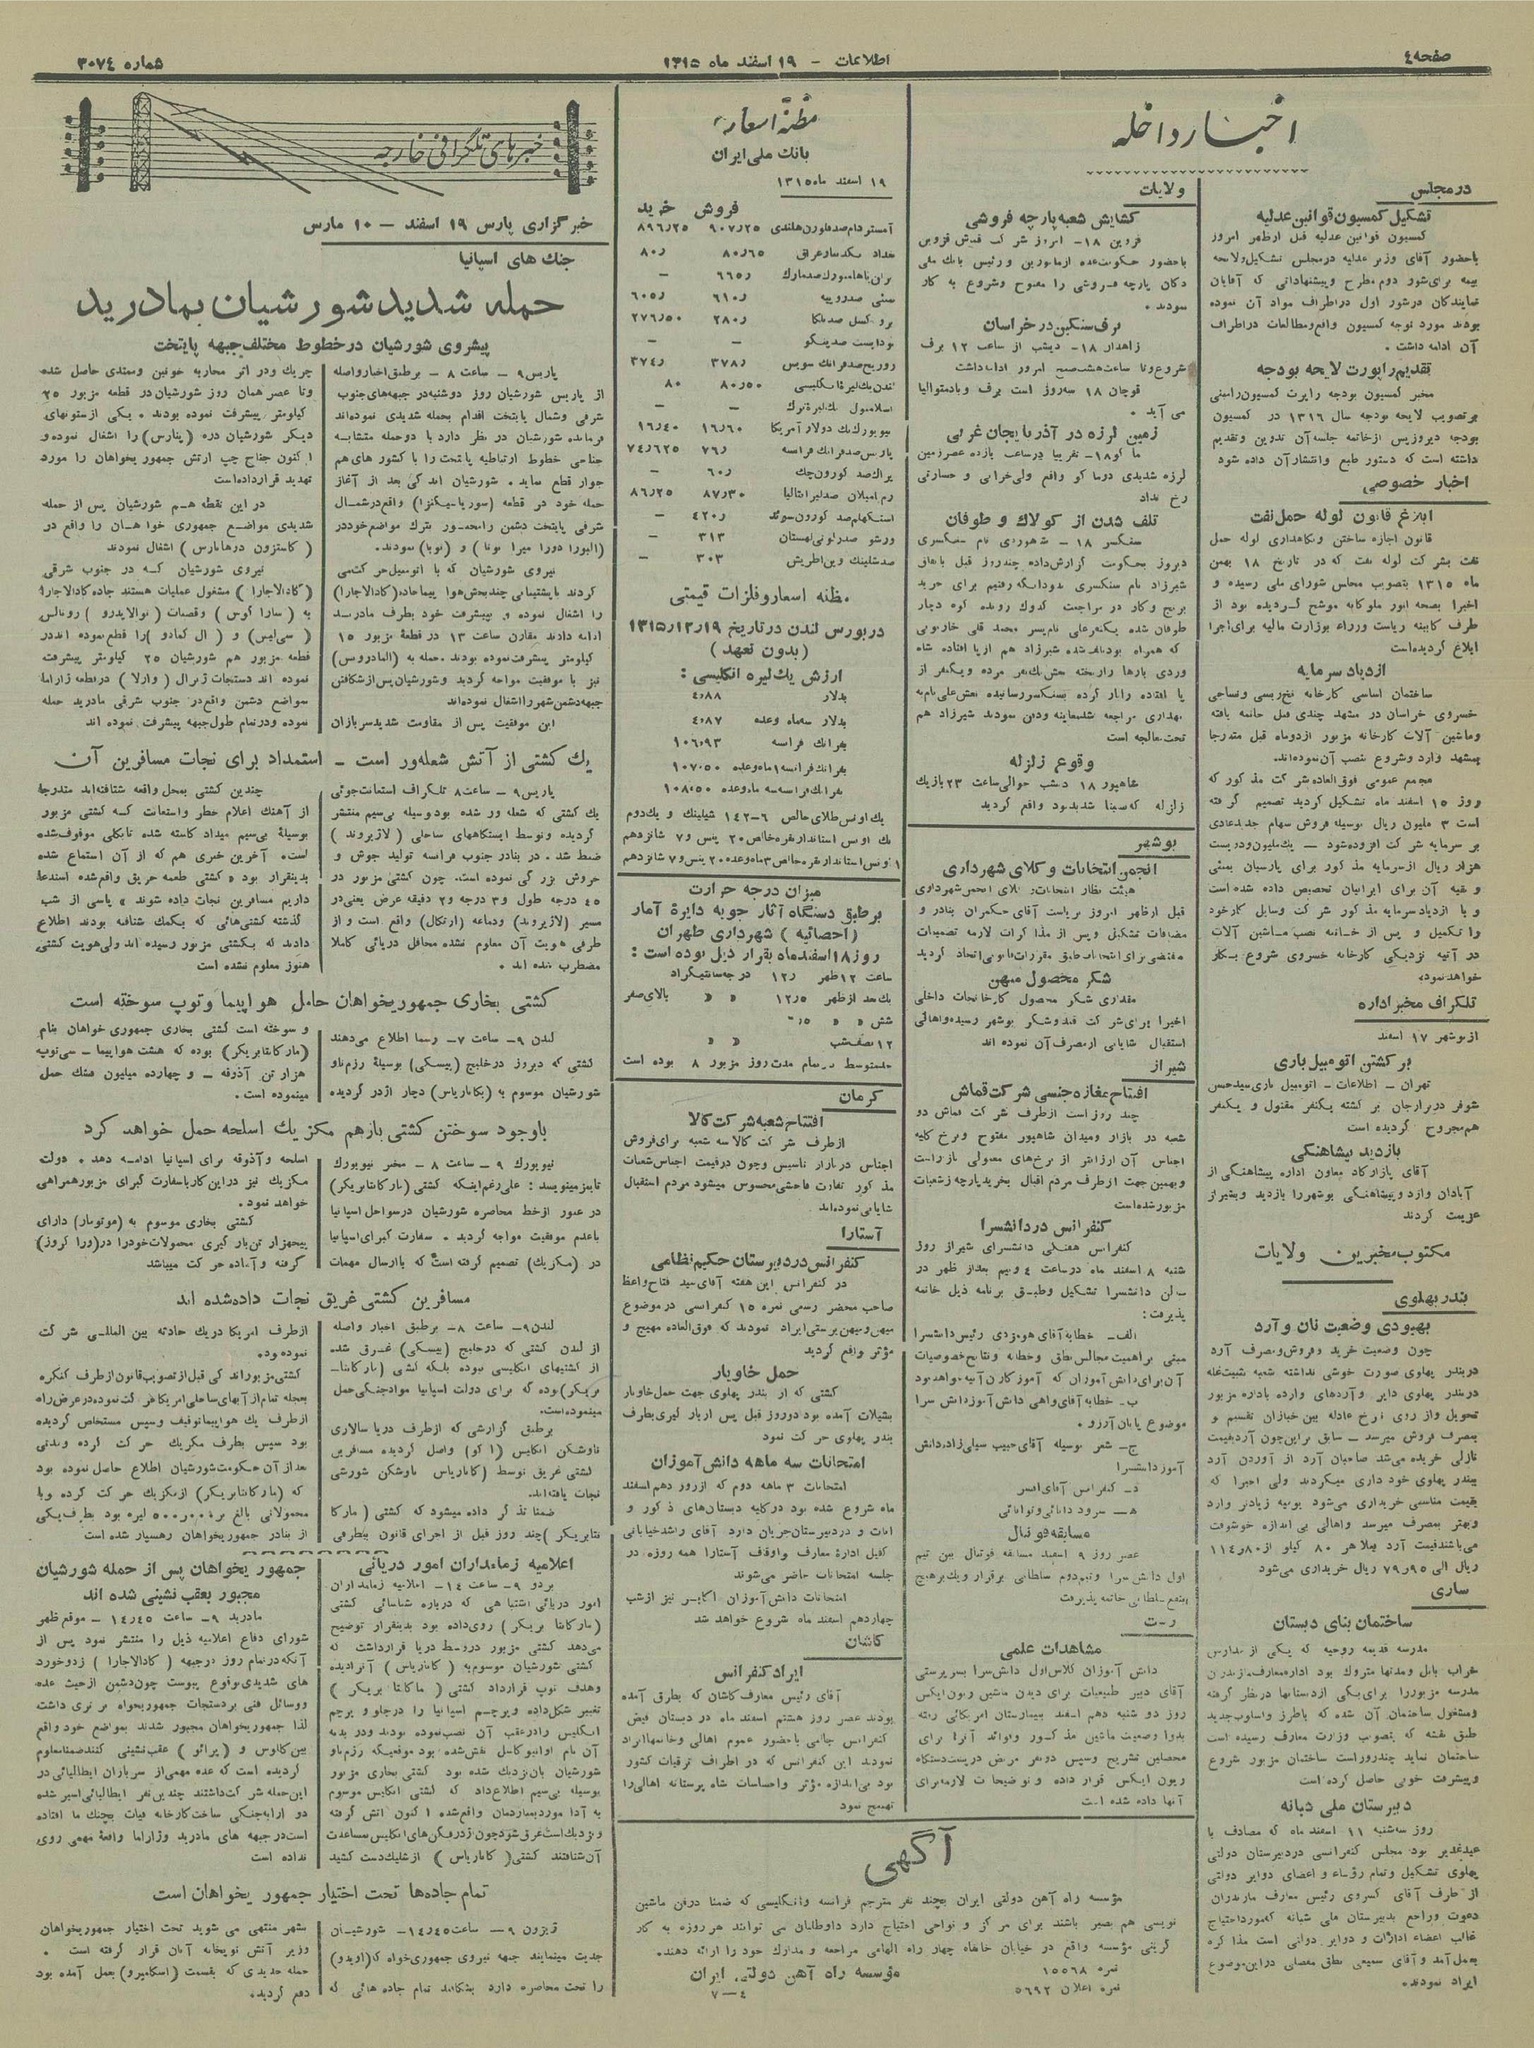 صفحه ٤
اطلاعات - ١٩ اسفند ماه ١٣١٥
شماره ٣٠٧٤
اخبار داخله
در مجلس
تشکیل کمسیون قوانین عدلیه
کمسیون قوانین عدلیه قبل از ظهر امروز
باحضور آقای وزیر عدلیه در مجلس تشکیل و لایحه
بیمه برای شور دوم مطرح و پیشنهاداتی که آقایان
نمایندگان در شور اول در اطراف مواد آن نموده
بودند مورد توجه کمسیون واقع و مطالعات در اطراف
آن ادامه داشت .
تقدیم راپورت لایحه بودجه
مخبر کمسیون بودجه راپرت کمسیون راستی
بر تصویب لایحه بودجه سال ١٣١٦ در کمسیون
بودجه دیروز پس از خاتمه جلسه آن تدوین و تقدیم
داشته است که دستور طبع و انتشار آن داده شود
اخبار خصوصی
ابلاغ قانون لوله حمل نفت
قانون اجازه ساختن و نگاهداری لوله حمل
نفت بشرکت لوله نفت که در تاریخ ١٨ بهمن
ماه ١٣١٥ بتصویب مجلس شورای ملی رسیده و
اخیرا بصحه ملوکانه موشح گردیده بود از
طرف کابینه ریاست وزراء بوزارت مالیه برای اجرا
ابلاغ گردیده است
ازدیاد سرمایه
ساختمان اساسی کارخانه نخ ریسی و نساجی
خسروی خراسان در مشهد چندی قبل خاتمه یافته
و ماشین آلات کارخانه مزبور از دو ماه قبل متدرجا
بمشهد وارد و شروع بنصب آن نموده اند.
مجمع عمومی فوق العاده شرکت مذکور که
روز ١٥ اسفند ماه تشکیل گردید تصمیم گرفته
است ٣ ملیون ریال بوسیله فروش سهام جدید عادی
بر سرمایه شرکت افزوده شود — یک ملیون و دویست
هزار ریال از سرمایه مذکور برای پارسیان بمبئی
و بقیه آن برای ایرانیان تخصیص داده شده است
و با ازدیاد سرمایه مذکور شرکت وسایل کار خود
را تکمیل و پس از خاتمه نصب ماشین آلات
در آتیه نزدیکی کارخانه خسروی شروع بکار
خواهد نمود.
تلگراف مخبر اداره
از بوشهر ١٧ اسفند
برگشتن اتومبیل باری
تهران - اطلاعات - اتومبیل باری سید حسن
شوفر در برازجان بر گشته یکنفر مقتول و یکنفر
هم مجروح گردیده است
بازدید پیشاهنگی
آقای پازارگاد معاون اداره پیشاهنگی از
آبادان وارد و پیشاهنگی بوشهر را بازدید و بشیراز
عزیمت کردند
مکتوب مخبرین ولایات
بندر پهلوی
بهبودی وضعیت نان و آرد
چون وضعیت خرید و فروش و مصرف آرد
در بندر پهلوی صورت خوشی نداشته شعبه تثبیت غله
در بندر پهلوی دایر و آردهای وارده باداره مزبور
تحویل و از روی نرخ عادله بین خبازان تقسیم و
بمصرف فروش میرسد — سابق بر این چون آرد بقیمت
نازلی خریده میشد صاحبان آرد از آوردن آرد
ببندر پهلوی خود داری میکردند ولی اخیرا که
بقیمت مناسبی خریداری می شود بومیه زیادتر وارد
وبهتر بمصرف میرسد و اهالی بی اندازه خوشوقت
می باشند قیمت آرد فعلا هر ٨٠ کیلو از ١١٤٫٨٠
ریال الی ٧٩٫٩٥ ریال خریداری می شود
ساری
ساختمان بنای دبستان
مدرسه قدیمه روحیه که یکی از مدارس
خراب بابل و مدتها متروک بود اداره معارف مازندران
مدرسه مزبور را برای یکی از دبستانها در نظر گرفته
و مشغول ساختمان آن شده که باطرز و اسلوب جدید
طبق نقشه که بتصویب وزارت معارف رسیده است
ساختمان نماید چند روز است ساختمان مزبور شروع
و پیشرفت خوبی حاصل کرده است
دبیرستان ملی شبانه
روز سه شنبه ١١ اسفند ماه که مصادف با
عید غدیر بود مجلس کنفرانسی در دبیرستان دولتی
پهلوی تشکیل و تمام رؤساء و اعضای دوایر دولتی
از طرف آقای کسروی رئیس معارف مازندران
دعوت و راجع بدبیرستان ملی شبانه که مورد احتیاج
غالب اعضاء ادارات و دوایر دولتی است مذاکره
بعمل آمد و آقای سمیعی نطق مفصلی در این موضوع
ایراد نمودند.
ولایات
گشایش شعبه پارچه فروشی
قزوین ١٨ - امروز شرکت قماش قزوین
باحضور حکومت و عده از مامورین و رئیس بانک ملی
دکان پارچه فروشی را مفتوح و شروع به کار
نمودند .
برف سنگین در خراسان
زاهدار ١٨ - دیشب از ساعت ١٢ برف
شروع و تا ساعت هشت صبح امروز ادامه داشت
قوچان ١٨ سه روز است برف و باد متوالیا
می آید .
زمین لرزه در آذربایجان غربی
ماکو ١٨ - تقریبا در ساعت یازده عصر زمین
لرزه شدیدی در ماکو واقع ولی خرابی و خسارتی
رخ نداد
تلف شدن از کولاک و طوفان
سنگسر ١٨ - شهوردی نام سنگسری
دیروز بحکومت گزارش داده چند روز قبل باتفاق
شیرزاد نام سنگسری بدودانگه رفتیم برای خرید
برنج و کار در مراجعت کدوک رودنه کوه دچار
طوفان شده یکنفر علی نام پسر محمد قلی خاربونی
که همراه بود تلف شده شیرزاد هم از پا افتاده شاه
وردی بارها را ریخته نعش یکنفر مرده و یکنفر از
پا افتاده را بار کرده بسنگسر رسانیده نعش علی نام به
بهداری مراجعه شد معاینه و دفن نمودند شیرزاد هم
تحت معالجه است
وقوع زلزله
شاهپور ١٨ دیشب حوالی ساعت ٢٣ باز یک
زلزله که نسبتا شدید بود واقع گردید
بوشهر
انجمن انتخابات وکلای شهرداری
هیئت نظار انتخابات وکلای انجمن شهرداری
قبل از ظهر امروز بریاست آقای حکمران بنادر و
مضافات تشکیل و پس از مذاکرات لازمه تصمیمات
مقتضی برای انتخابات طبق مقررات قانونی اتخاذ گردید
شکر محصول میهن
مقداری شکر محصول کارخانجات داخلی
اخیرا برای شرکت قند و شکر بوشهر رسیده و اهالی
استقبال شایانی از مصرف آن نموده اند
شیراز
افتتاح مغازه جنسی شرکت قماش
چند روز است از طرف شرکت قماش دو
شعبه در بازار و میدان شاهپور مفتوح و نرخ کلیه
اجناس آن ارزانتر از نرخ های معمولی بازار است
و بهمین جهت از طرف مردم اقبال بخرید پارچه از شعبات
مزبور شده است
کنفرانس در دانشسرا
کنفرانس هفتگی دانشسرای شیراز روز
شنبه ٨ اسفند ماه در ساعت ٤ و نیم بعد از ظهر در
سالن دانشسرا تشکیل و طبق برنامه ذیل خاتمه
پذیرفت :
الف - خطابه آقای هومزدی رئیس دانشسرا
مبنی بر اهمیت مجالس نطق و خطابه و نتایج خصوصیات
آن برای دانش آموزان که آموزگاران آتیه خواهد بود
ب - خطابه آقای واهی دانش آموز دانش سرا
موضوع پایان آرزو .
ج - شعر بوسیله آقای حبیب سیلی زاد، دانش
آموز دانشسرا
د - کنفرانس آقای افسر
ه - سرود دانائی و توانائی
مسابقه فوتبال
عصر روز ٩ اسفند مسابقه فوتبال بین تیم
اول دانش سرا و تیم دوم سلطانی برقرار و یک بر هیچ
بنفع سلطانی خاتمه پذیرفت
رشت
مشاهدات علمی
دانش آموزان کلاس اول دانش سرا بسرپرستی
آقای دبیر طبیعیات برای دیدن ماشین ریون ایکس
روز دو شنبه دهم اسفند بیمارستان امریکائی رفته
بدوا وضعیت ماشین مذکور و فوائد آنرا برای
محصلین تشریح و سپس دو نفر مریض در پست دستگاه
ریون ایکس قرار داده و توضیحات لازمه برای
آنها داده شده است
مظنه اسعار
بانک ملی ایران
١٩ اسفند ماه ١٣١٥
فروش خرید
آمستردام صد فلورن هلندی ٩٠٧٫٢٥ ٨٩٦٫٢٥
بغداد یکدینار عراق ٨٠٫٦٥ ٨٠٫
برلن یا هامبورک صد مارک ٦٦٥٫ —
بمبئی صد روپیه ٦١٠٫ ٦٠٥٫
بروکسل صد بلگا ٢٨٠٫ ٢٧٦٫٥٠
بوداپست صد پنگو — —
زوریخ صد فرانک سویس ٣٧٨٫ ٣٧٤٫
لندن یک لیره انگلیسی ٨٠٫٥٠ ٨٠
اسلامبول یک لیره ترک — —
نیویورک یک دولار آمریکا ١٦٫٦٠ ١٦٫٤٠
پاریس صد فرانک فرانسه ٧٦٫ ٧٤٫٦٢٥
پراک صد کورون چک ٦٠٫ —
رم میلان صد لیر ایتالیا ٨٧٫٣٠ ٨٦٫٢٥
استکهلم صد کورون سوئد ٤٢٠٫ —
ورشو صد زلوتی لهستان ٣١٣ —
صد شلینک وین اطریش ٣٠٣ —
مظنه اسعار و فلزات قیمتی
در بورس لندن در تاریخ ١٣١٥٫١٢٫١٩
( بدون تعهد )
ارزش یک لیره انگلیسی :
بدلار ٤٫٨٨
بدلار سه ماه وعده ٤٫٨٧
بفرانک فرانسه ١٠٦٫٩٣
بفرانک فرانسه ١ ماه وعده ١٠٧٫٥٠
بفرانک فرانسه سه ماه وعده ١٠٨٫٥٠
یک اونس طلای خالص ٦-١٤٢ شیلینک و یک دوم
یک اونس استاندارد نقره خالص ٢٠ پنس و ٧ شانزدهم
١ اونس استاندارد نقره خالص ٣ ماه وعده ٢٠ پنس و ٧ شانزدهم
میزان درجه حرارت
برطبق دستگاه آثار جویه دایرهٔ آمار
( احصائیه ) شهرداری طهران
روز ١٨ اسفند ماه بقرار ذیل بوده است :
ساعت ١٢ ظهر ١٢٫ درجه سانتیگراد
یک بعد از ظهر ١٢٫٥ « « بالای صفر
شش « « ٥٫
١٢ نصف شب « «
حد متوسط در تمام مدت روز مزبور ٨ بوده است
کرمان
افتتاح شعبه شرکت کالا
از طرف شرکت کالا سه شعبه برای فروش
اجناس در بازار تاسیس و چون در قیمت اجناس شعبات
مذکور تفاوت فاحشی محسوس میشود مردم استقبال
شایانی نموده اند
آستارا
کنفرانس در دبیرستان حکیم نظامی
در کنفرانس این هفته آقای سید فتاح واعظ
صاحب محضر رسمی نمره ١٥ کنفرانسی در موضوع
میهن و میهن پرستی ایراد نمودند که فوق العاده مهیج و
مؤثر واقع گردید
حمل خاویار
کشتی که از بندر پهلوی جهت حمل خاویار
بشیلات آمده بود دو روز قبل پس از بار گیری بطرف
بندر پهلوی حرکت نمود
امتحانات سه ماهه دانش آموزان
امتحانات ٣ ماهه دوم که از روز دهم اسفند
ماه شروع شده بود در کلیه دبستان های ذکور و
اناث و در دبیرستان جریان دارد آقای راشد خیابانی
کفیل ادارهٔ معارف و اوقاف آستارا همه روزه در
جلسه امتحانات حاضر می شوند
امتحانات دانش آموزان اکابر نیز از شب
چهاردهم اسفند ماه شروع خواهد شد
کاشان
ایراد کنفرانس
آقای رئیس معارف کاشان که بطرق آمده
بودند عصر روز هشتم اسفند ماه در دبستان فیض
کنفرانس جالبی باحضور عموم اهالی و خانمها ایراد
نمودند این کنفرانس که در اطراف ترقیات کشور
بود بی اندازه مؤثر و احساسات شاه پرستانه اهالی را
تهییج نمود
آگهی
مؤسسه راه آهن دولتی ایران بچند نفر مترجم فرانسه و انگلیسی که ضمنا در فن ماشین
نویسی هم بصیر باشند برای مرکز و نواحی احتیاج دارد داوطلبان می توانند هر روزه به کار
گزینی مؤسسه واقع در خیابان خانقاه چهار راه الهامی مراجعه و مدارک خود را ارائه دهند.
نمره ١٥٥٦٨
نمره اعلان ٥٦٩٢
مؤسسه راه آهن دولتی ایران
٤—٧
خبرهای تلگرافی خارجه
خبرگزاری پارس ١٩ اسفند – ١٠ مارس
جنگ های اسپانیا
حمله شدید شورشیان بمادرید
پیشروی شورشیان در خطوط مختلف جبهه پایتخت
پاریس ٩ - ساعت ٨ - برطبق اخبار واصله
از پاریس شورشیان روز دوشنبه در جبهه های جنوب
شرقی و شمال پایتخت اقدام بحمله شدیدی نموده اند
فرمانده شورشیان در نظر دارد با دو حمله متشابه
جناحی خطوط ارتباطیه پایتخت را با کشور های هم
جوار قطع نماید . شورشیان اندکی بعد از آغاز
حمله خود در قطعه (سوریا سیگنزا) واقع در شمال
شرقی پایتخت دشمن را مجبور بترک مواضع خود در
(البورا دورا میرا بونا) و (نوبا) نمودند.
نیروی شورشیان که با اتومبیل حرکت می
کردند با پشتیبانی چند بخش هوا پیما جاده (گادالاجارا)
را اشغال نموده و به پیشرفت خود بطرف مادرید
ادامه دادند مقارن ساعت ١٣ در قطعهٔ مزبور ١٥
کیلومتر پیشرفت نموده بودند. حمله به (المادرونس)
نیز با موفقیت مواجه گردید و شورشیان پس از شکافتن
جبهه دشمن شهر را اشغال نموده اند
این موفقیت پس از مقاومت شدید سربازان
چریک و در اثر محاربه خونین و ممتدی حاصل شده
و تا عصر همان روز شورشیان در قطعه مزبور ٢٥
کیلومتر پیشرفت نموده بودند . یکی از ستونهای
دیگر شورشیان دره (ینارس) را اشغال نموده و
اکنون جناح چپ ارتش جمهور یخواهان را مورد
تهدید قرار داده است
در این نقطه هم شورشیان پس از حمله
شدیدی مواضع جمهوری خواهان را واقع در
( کاستزون درهنارس ) اشغال نمودند
نیروی شورشیان که در جنوب شرقی
(گادالاجارا ) مشغول عملیات هستند جاده گادالاجارا
به ( سارا گوس ) و قصبات ( نوالایدرو ) رونالس
( سی لیس) و ( ال کمادو )را قطع نموده اند در
قطعه مزبور هم شورشیان ٢٥ کیلومتر پیشرفت
نموده اند دستجات ژنرال ( وارلا ) در نقطه ژاراما
بمواضع دشمن واقع در جنوب شرقی مادرید حمله
نموده و در تمام طول جبهه پیشرفت نموده اند
یک کشتی از آتش شعله ور است – استمداد برای نجات مسافرین آن
پاریس ٩ - ساعت ٨ تلگراف استعانت جوئی
یک کشتی که شعله ور شده بود بوسیله بی سیم منتشر
گردیده و توسط ایستگاههای ساحلی ( لاژیروند )
ضبط شد . در بنادر جنوب فرانسه تولید جوش و
خروش بزرگی نموده است. چون کشتی مزبور در
٤٥ درجه طول و ٣ درجه و ٢ دقیقه عرض یعنی در
مسیر (لاژیروند) و دماغه (ارتگال) واقع است و از
طرفی هویت آن معلوم نشده محافل دریائی کاملا
مضطرب شده اند .
چندین کشتی بمحل واقعه شتافته اند متدرجا
از آهنک اعلام خطر و استعانت که کشتی مزبور
بوسیلهٔ بی سیم میداد کاسته شده تا بکلی موقوف شده
است. آخرین خبری هم که از آن استماع شده
بدینقرار بود « کشتی طعمه حریق واقع شده استدعا
داریم مسافرین نجات داده شوند » پاسی از شب
گذشته کشتی هائی که بکمک شتافته بودند اطلاع
دادند که بکشتی مزبور رسیده اند ولی هویت کشتی
هنوز معلوم نشده است
کشتی بخاری جمهوریخواهان حامل هواپیما و توپ سوخته است
لندن ٩ - ساعت ٧ - رسما اطلاع می دهند
کشتی که دیروز در خلیج (بیسکی) بوسیلهٔ رزم ناو
شورشیان موسوم به (کاناریاس) دچار اژدر گردیده
و سوخته است کشتی بخاری جمهوری خواهان بنام
(مارکانتابریکر) بوده که هشت هواپیما – سی توپ
هزار تن آذوقه – و چهارده میلیون فشنک حمل
مینموده است .
باوجود سوختن کشتی بازهم مکزیک اسلحه حمل خواهد کرد
نیویورک ٩ - ساعت ٨ - مخبر نیویورک
تایمز مینویسد : علی رغم اینکه کشتی (مارکانتابریکر)
در عبور از خط محاصره شورشیان در سواحل اسپانیا
باعدم موفقیت مواجه گردید . سفارت کبرای اسپانیا
در (مکزیک) تصمیم گرفته است که بارسال مهمات
اسلحه و آذوقه برای اسپانیا ادامه دهد . دولت
مکزیک نیز در این کار باسفارت کبرای مزبور همراهی
خواهد نمود.
کشتی بخاری موسوم به (موتومار) دارای
پنجهزار تن بار گیری محمولات خود را در (ورا کروز)
گرفته و آماده حرکت میباشد
مسافرین کشتی غریق نجات داده شده اند
لندن ٩ - ساعت ٨ - برطبق اخبار واصله
از لندن کشتی که در خلیج (بیسکی) غرق شده
از کشتیهای انگلیسی نبوده بلکه کشتی (مارکانتا-
بریکر) بوده که برای دولت اسپانیا مواد جنگی حمل
مینموده است.
برطبق گزارشی که از طرف دریا سالاری
ناوشکن انگلیس (اکو) واصل گردیده مسافرین
کشتی غریق توسط (کاناریاس) ناوشکن شورشی
نجات یافته اند.
ضمنا تذکر داده میشود که کشتی (مارکا
نتابریکر) چند روز قبل از اجرای قانون بیطرفی
از طرف امریکا در یک حادثه بین المللی شرکت
نموده بود.
کشتی مزبور اندکی قبل از تصویب قانون از طرف کنگره
بعجله تمام از آبهای ساحلی امریکا حرکت نموده در عرض راه
از طرف یک هواپیما توقیف و سپس مستخلص گردیده
بود سپس بطرف مکزیک حرکت کرده و مدتی
بعد از آن حکومت شورشیان اطلاع حاصل نموده بود
که (مارکانتابریکر) از مکزیک حرکت کرده و با
محمولاتی بالغ بر ٥٠٠٠٠٠ لیره بود بطرف یکی
از بنادر جمهوریخواهان رهسپار شده است
اعلامیه زمامداران امور دریائی
بردو ٩ - ساعت ١٤ - اعلامیه زمامداران
امور دریائی اشتباهی که درباره شناسائی کشتی
(مارکانتا بریکر) رویداده بود بدینقرار توضیح
می دهد کشتی مزبور در وسط دریا قرار داشت که
کشتی شورشیان موسوم به ( کاناریاس ) آنرا دیده
و هدف توپ قرار داد کشتی ( مارکانتا بریکر )
تغییر شکل داده و پرچم اسپانیا را در جلو و پرچم
انگلیس را در عقب آن نصب نموده بودند و در بدنه
آن نام آدانیو کاسل نقش شده بود موقعیکه رزم ناو
شورشیان بآن نزدیک شده بود کشتی بخاری مزبور
بوسیله بی سیم اطلاع داد که کشتی انگلیس موسوم
به آدا مورد بمباردمان واقع شده و اکنون آتش گرفته
و نزدیک است غرق شود چون اژدر فکن های انگلیس بمساعدت
آن شتافتند کشتی ( کاناریاس ) از شلیک دست کشید
جمهوریخواهان پس از حمله شورشیان
مجبور بعقب نشینی شده اند
مادرید ٩ - ساعت ١٤٫٤٥ - موقع ظهر
شورای دفاع اعلامیه ذیل را منتشر نمود پس از
آنکه در تمام روز در جبهه ( گادالاجارا ) زد و خورد
های شدیدی بوقوع پیوست چون دشمن از حیث عده
و وسائل فنی بر دستجات جمهوریخواه برتری داشت
لذا جمهوریخواهان مجبور شدند بمواضع خود واقع
بین کالوس و (یرائو) عقب نشینی کنند ضمنا معلوم
گردیده است که عده مهمی از سربازان ایطالیائی در
این حمله شرکت داشتند چندین نفر ایطالیائی اسیر شده
و دو ارابه جنگی ساخت کارخانه فیات بچنک ما افتاده
است در جبهه های مادرید و ژاراما واقعهٔ مهمی روی
نداده است
تمام جاده ها تحت اختیار جمهوریخواهان است
تیزرون ٩ – ساعت ١٤٫٤٥ - شورشیان
جدیت مینمایند جبهه نیروی جمهوری خواه که (اویدو)
را تحت محاصره دارد بشکافند تمام جاده هائی که
بشهر منتهی می شوند تحت اختیار جمهوریخواهان
وزیر آتش توپخانه آنان قرار گرفته است .
حمله جدیدی که بقسمت (اسکامپرو) بعمل آمده بود
دفع گردید.